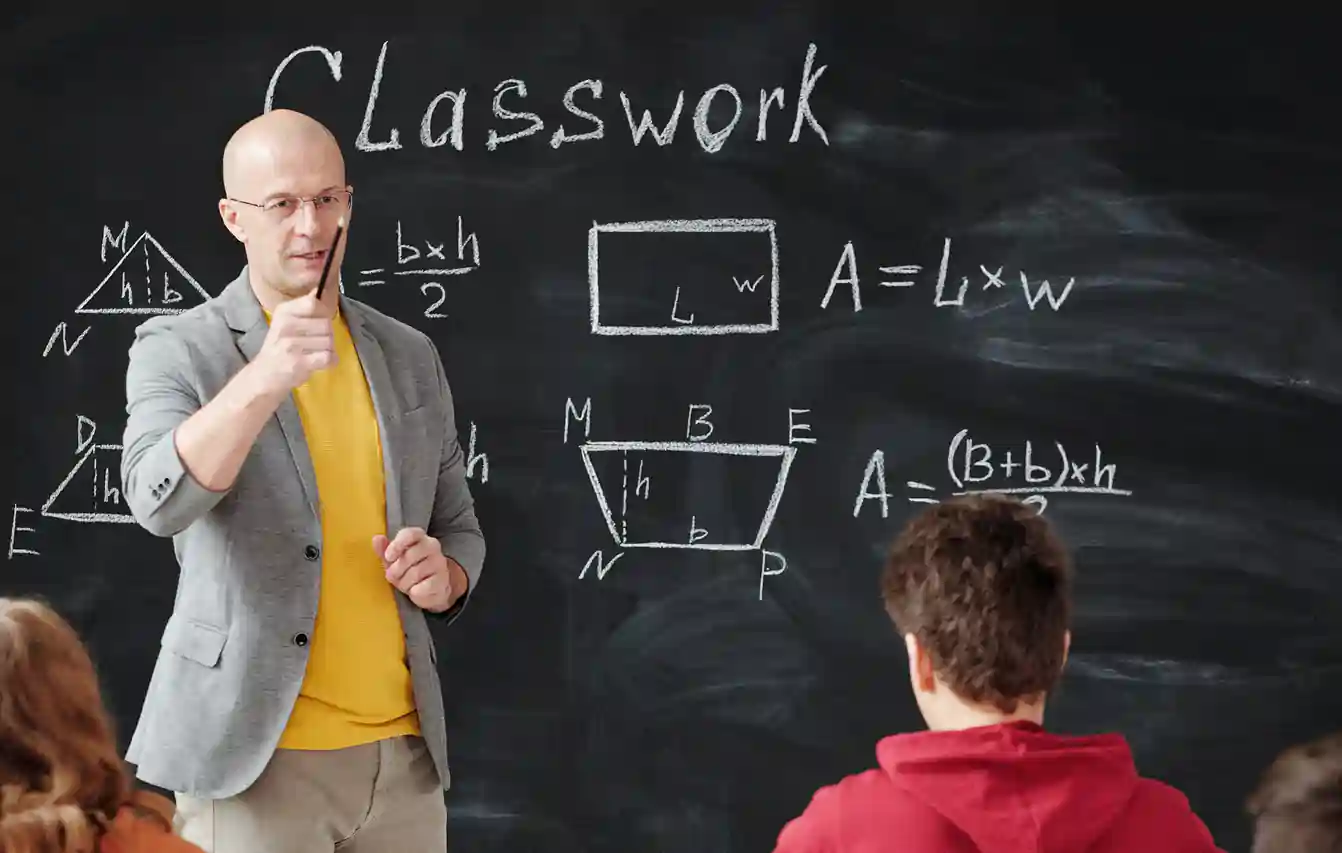 Classwork
M
h b
N
= b×h
2
L w
A = L×w
D
h
E
h
M B E
h
b
N P
A = (B+b)×h
2